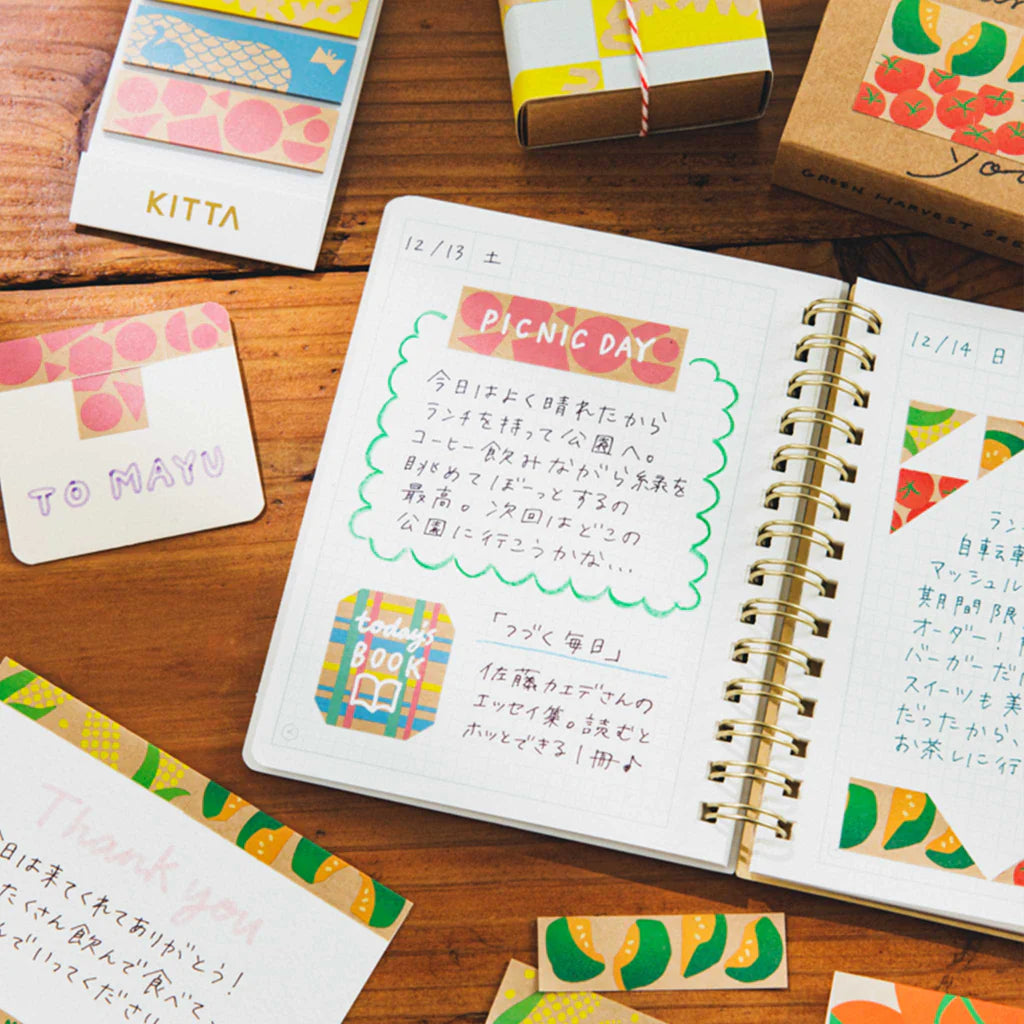 KITTA
you
GREEN HARVEST
TO MAYU
12/13 土
PICNIC DAY
今日はよく晴れたから
ランチを持って公園へ。
コーヒー飲みながら緑を
眺めてぼーっとするの
最高。次回はどこの
公園に行こうかな...
today's
BOOK
「つづく毎日」
佐藤カエデさんの
エッセイ集。読むと
ホッとできる1冊♪
12/14 日
ラン
自転車
マッシュル
期間限
オーダー!
バーガーだけ
スイーツも美
だったから、
お茶しに行
Thank you
今日は来てくれてありがとう!
たくさん飲んで食べて、
んでいってくださ